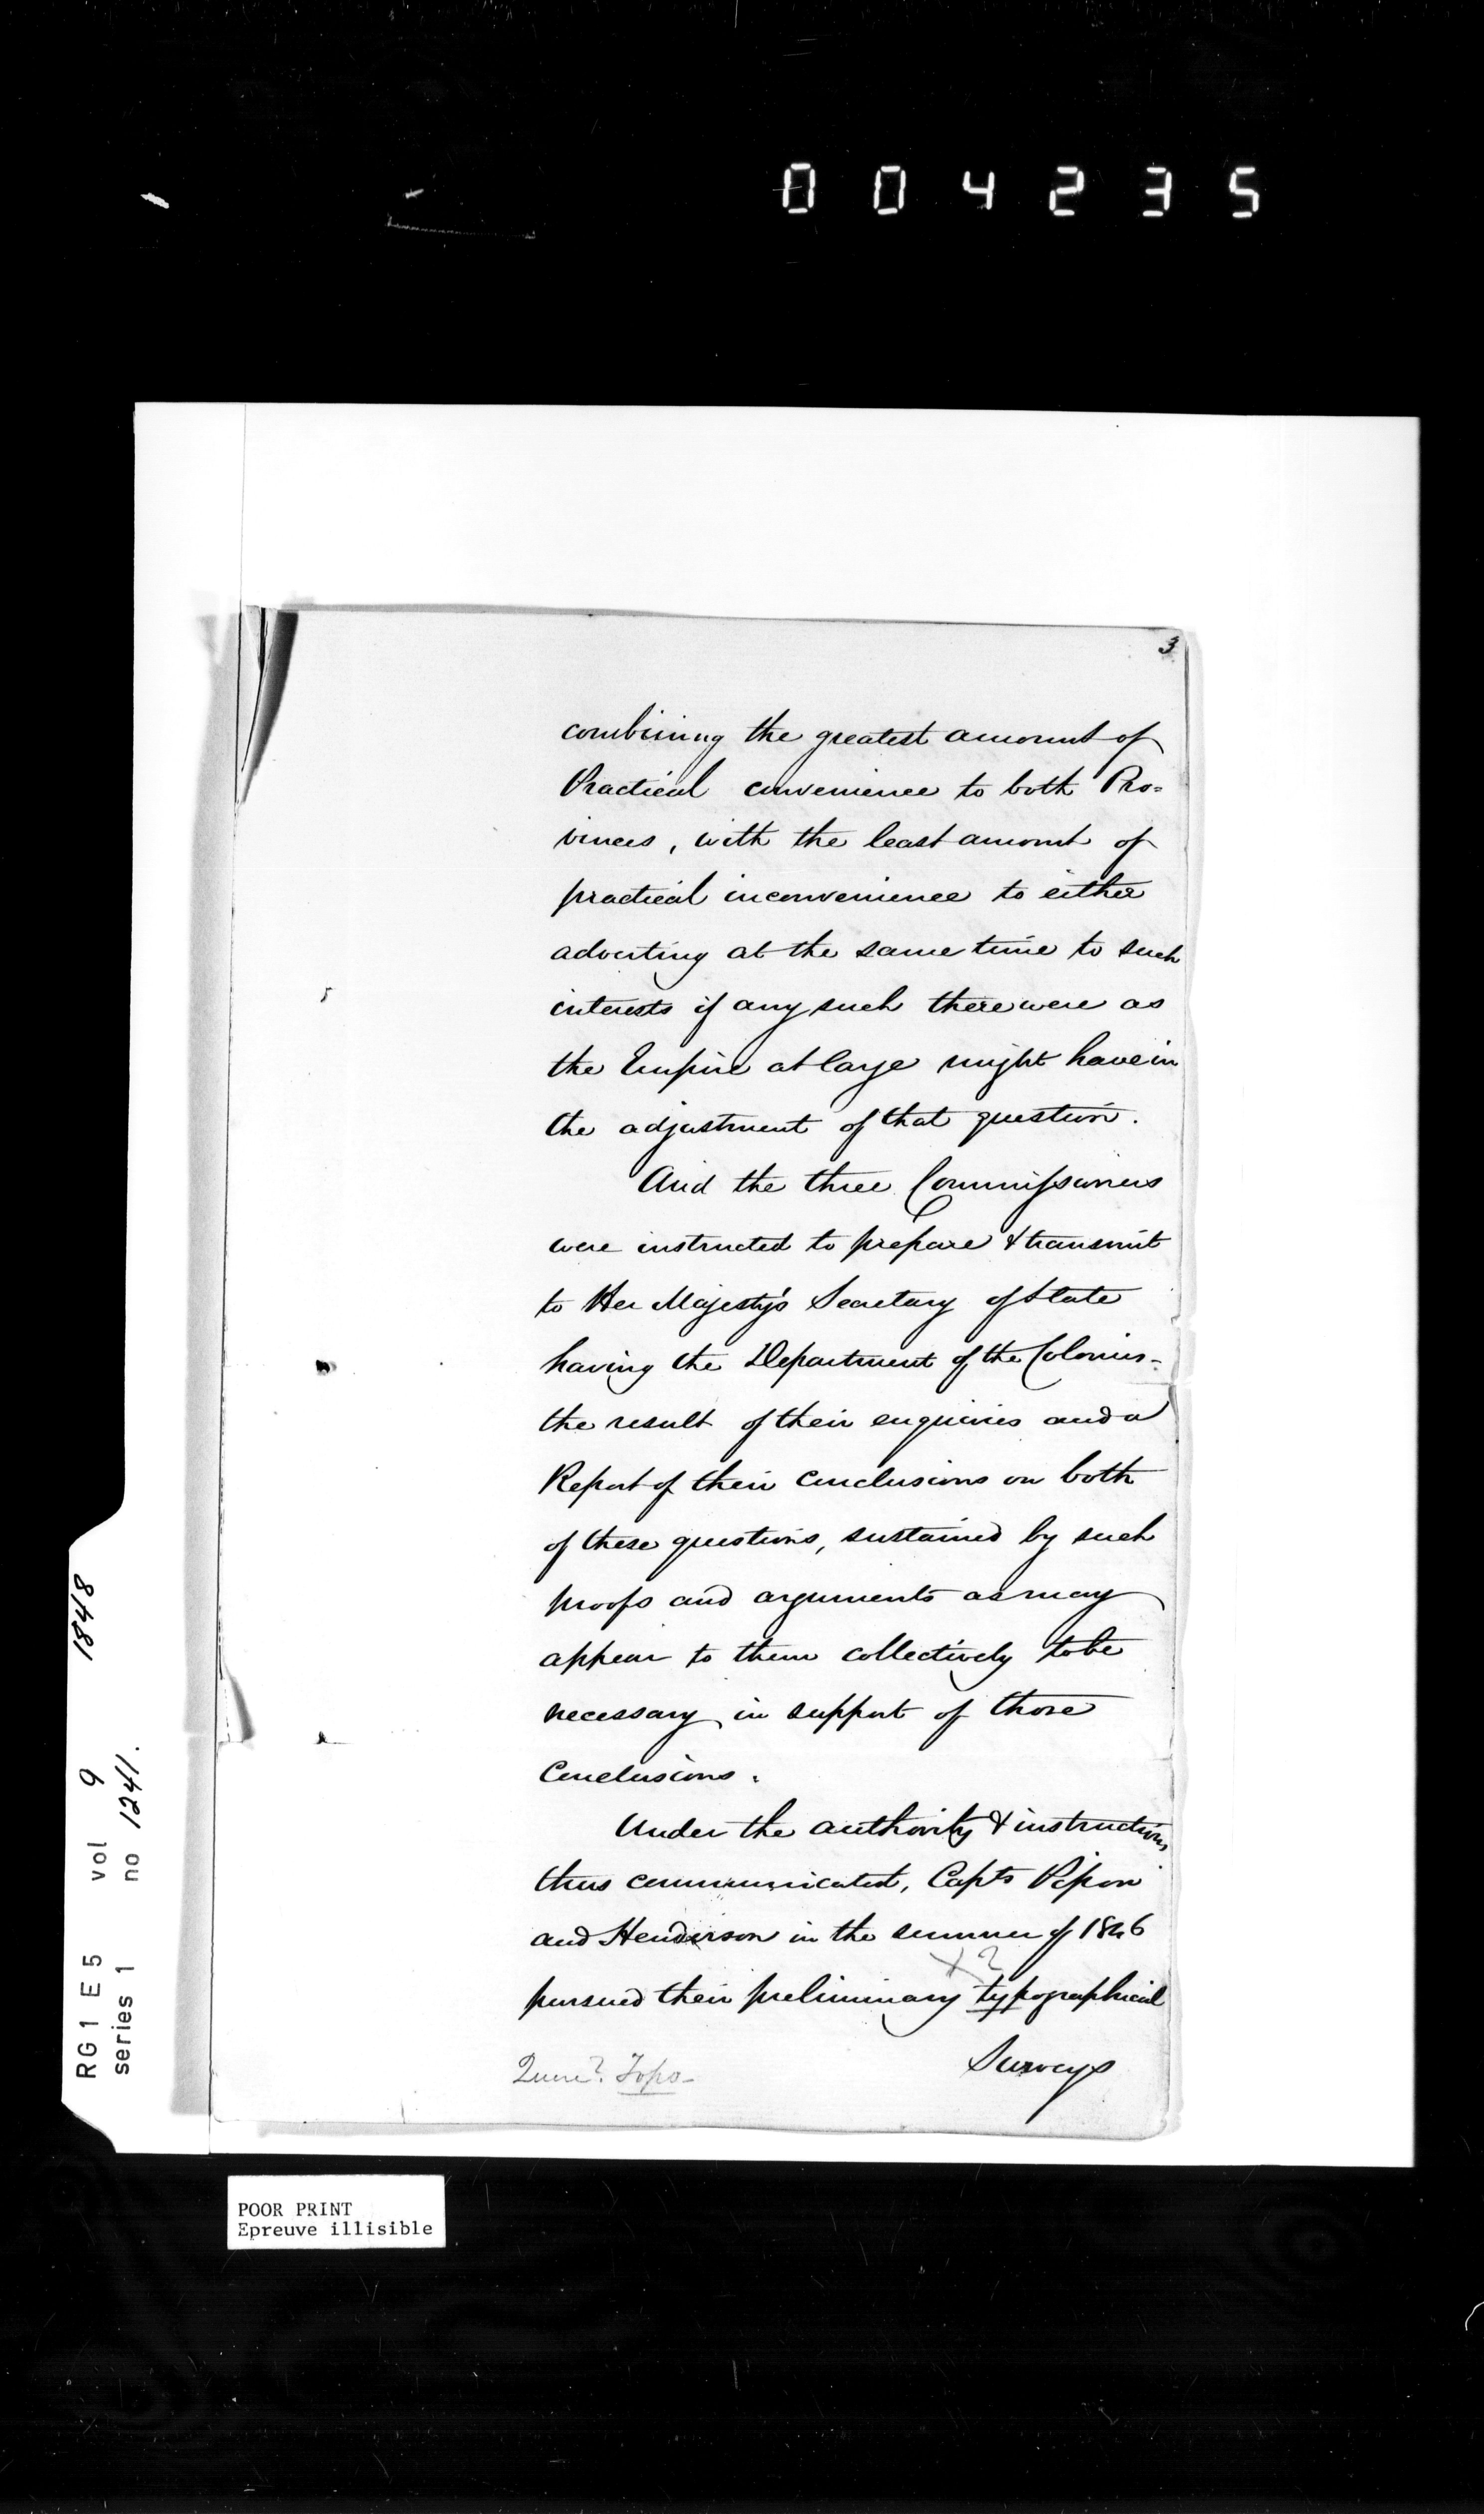 004235
3
combining the greatest amount of
Practical convenience to both Pro=
vinces, with the least amount of
practical inconvenience to either
adverting at the same time to such
interests if any such there were as
the Empire at large might have in
the adjustment of that question.
And the three Commissioners
were instructed to prepare & transmit
to Her Majesty's Secretary of State
having the Department of the Colonies-
the result of their enquiries and a
Report of their Conclusions on both
of these questions, sustained by such
proofs and arguments as may
appear to them collectively to be
necessary in support of those
Conclusions.
Under the authority & instructions
thus communicated, Capts Pipon
and Henderson in the summer of 1846
x ?
pursued their preliminary typographical
Surveys
Topo-
RG 1 E 5 vol 9 1848
series 1 no 1241.
POOR PRINT
Epreuve illisible